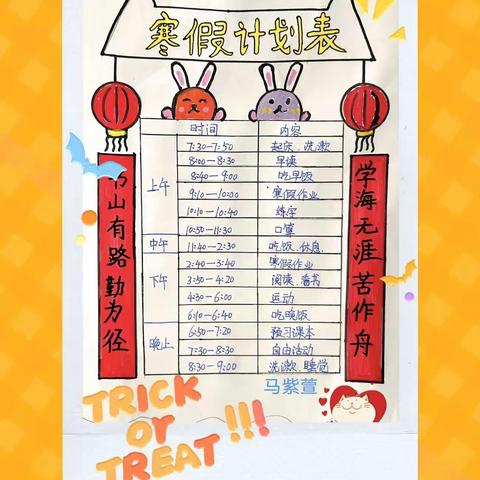 寒假计划表
书山有路勤为径
学海无涯苦作舟
时间 内容
上午
7:30—7:50 起床、洗漱
8:00—8:30 早读
8:40—9:00 吃早饭
9:10—10:00 寒假作业
10:10—10:40 练字
10:50—11:30 口算
中午
11:40—2:30 吃饭、休息
下午
2:40—3:40 寒假作业
3:50—4:20 阅读、看书
4:30—6:00 运动
6:10—6:40 吃晚饭
晚上
6:50—7:20 预习课本
7:30—8:30 自由活动
8:30—9:00 洗漱、睡觉
马紫萱
TRICK
or
TREAT!!!